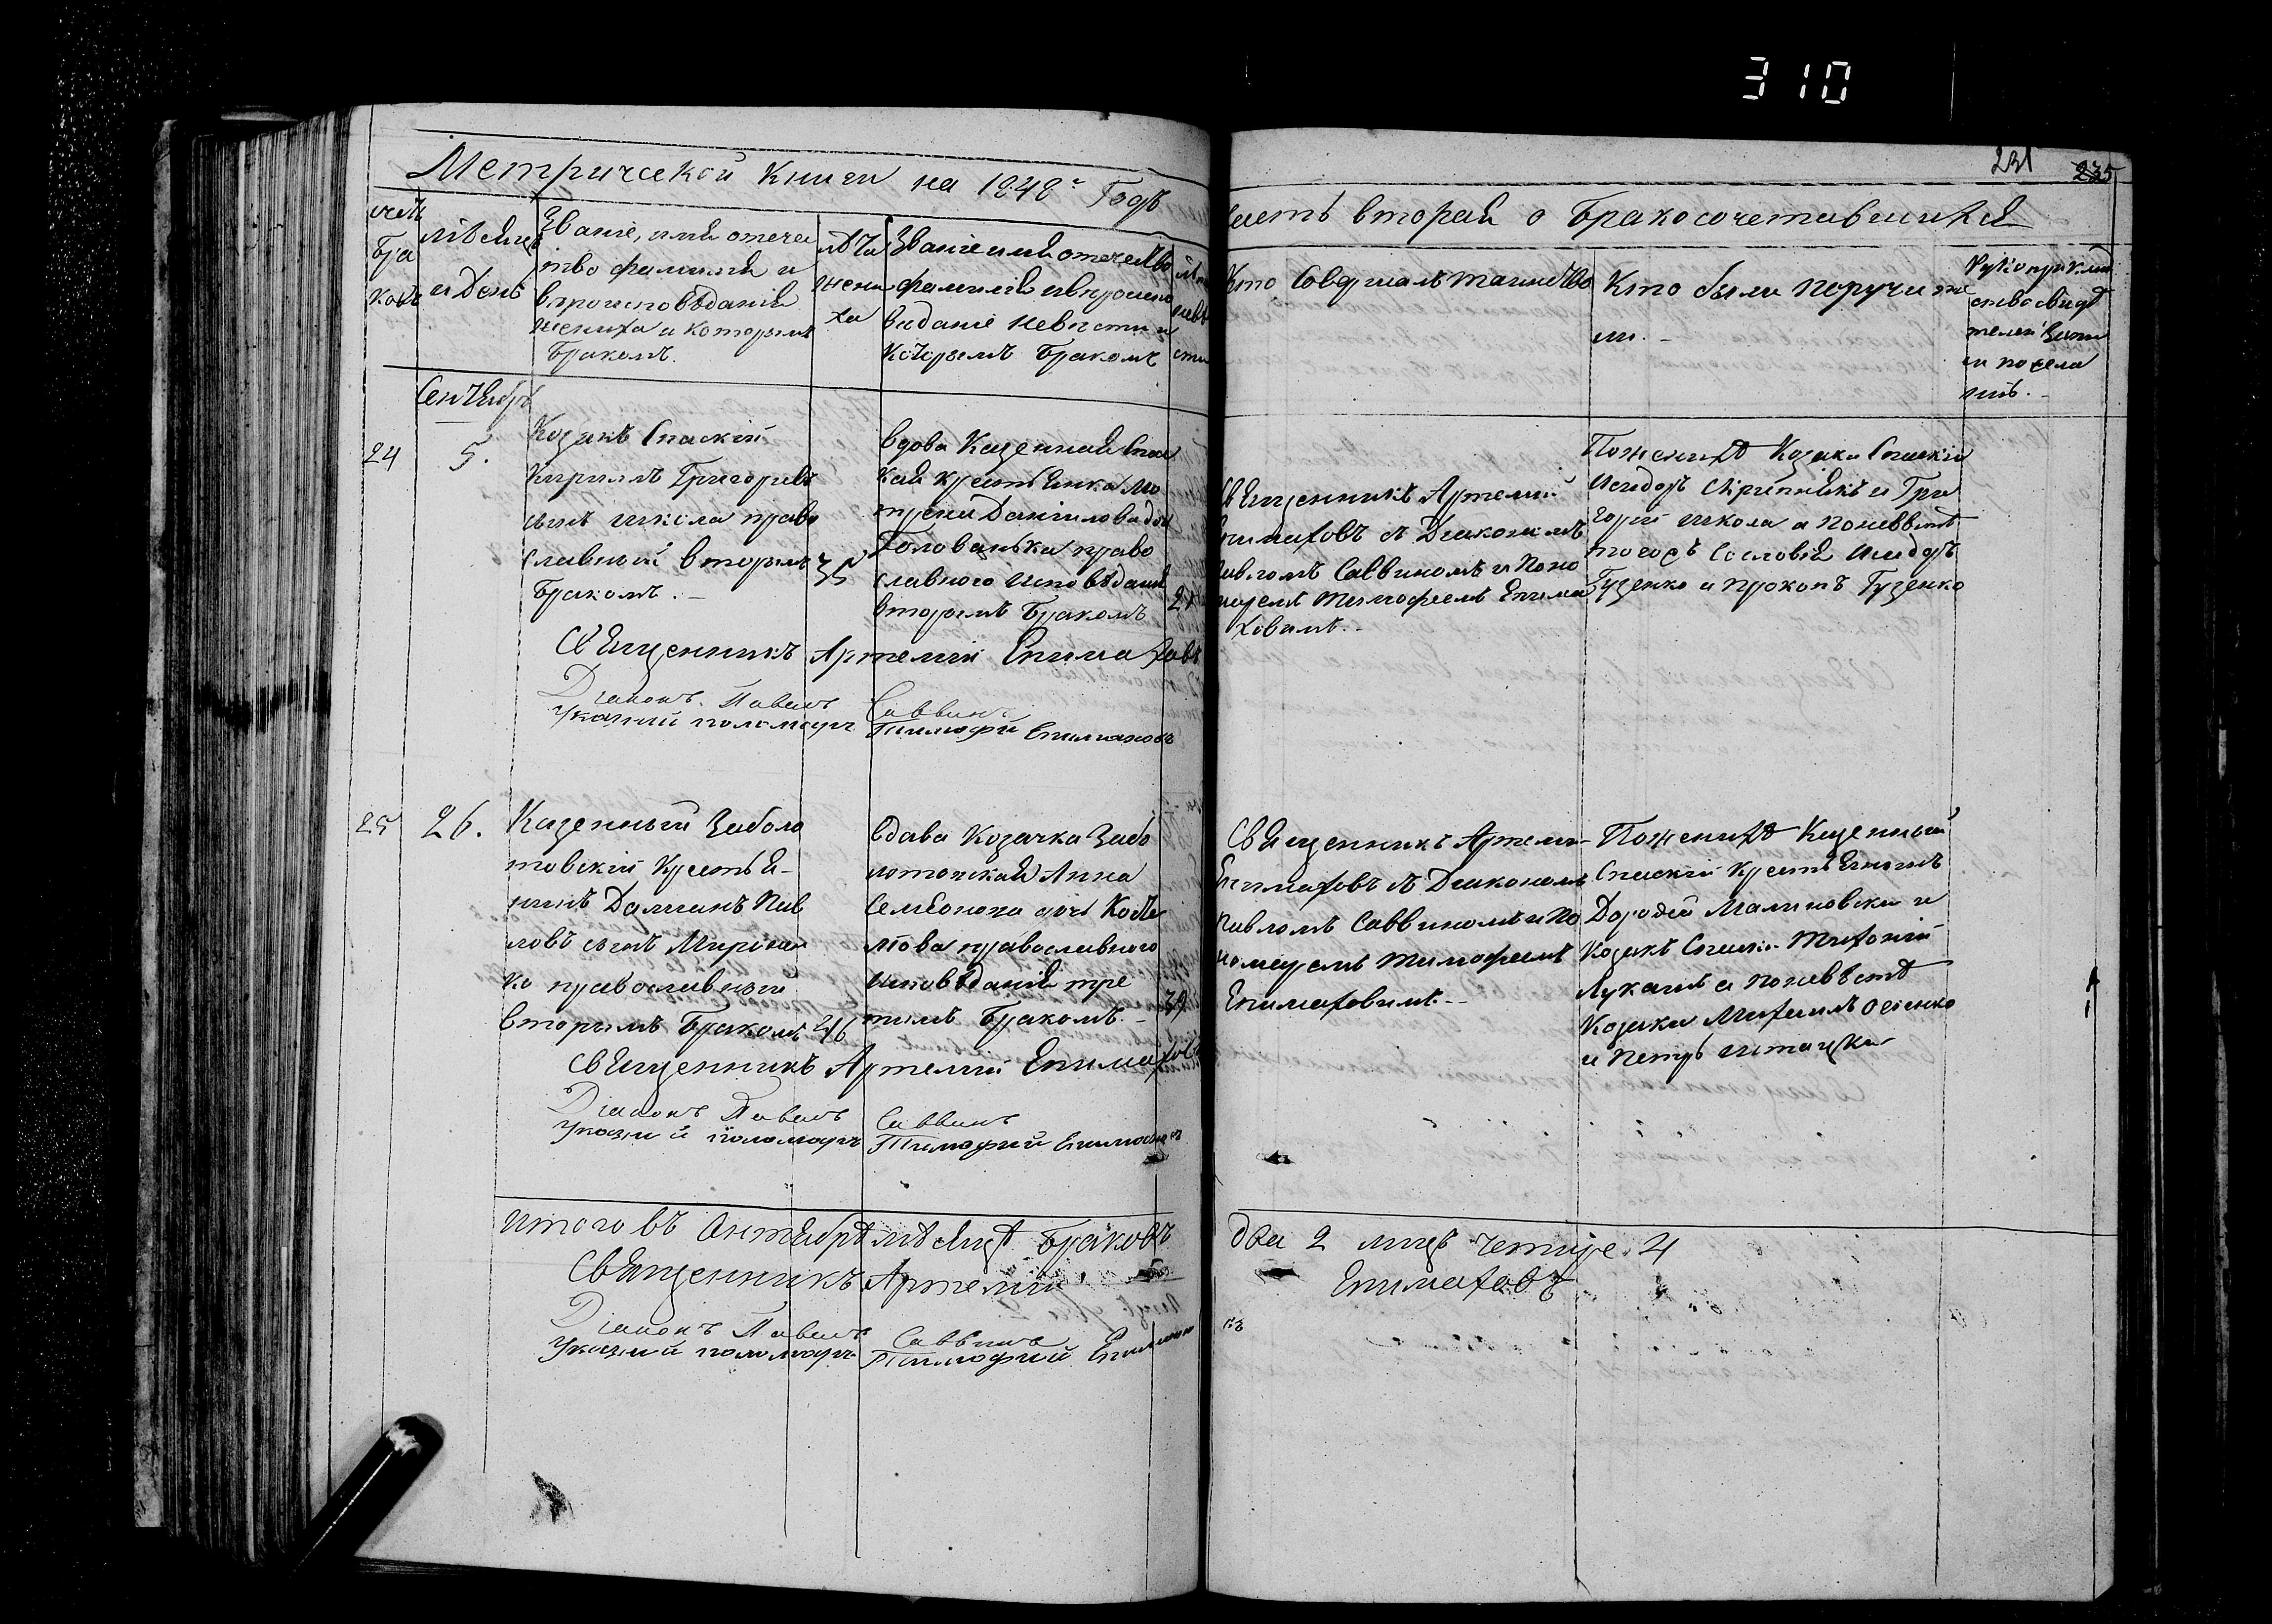 310
231
235
Метрической Книги на 1848 Годъ
Часть вторая о Бракосочетавшихся
счетъ
бра
ковъ
мѣсяцъ
и День
Званіе, имя отечес
тво фамилія и
вѣроисповѣданіе
жениха и которымъ
Бракомъ.
лѣта
жени
ха
Званіе имя отечество
фамилія и вѣроиспо
веданіе невѣсти и
которымъ Бракомъ
лѣта
невѣ
сти
Кто Совершалъ таинство
Кто были поручите
ли.
Рукоприклад
ство свидѣ
телей
Сентябрь
24
5.
Козакъ Спаскій
Кириллъ Григорьевъ
сынъ школа право
славный вторымъ
бракомъ.
35
вдова Казенная Спас
кая крестьянка Мо
трона Данилова доч
Голованька право
славного исповѣданія
вторымъ Бракомъ
Священникъ Артемій
Епимаховъ съ Диакономъ
Павломъ Саввиномъ и Поно
марем Тимофеемъ Епима
ховимъ.
Поженихѣ Козаки Спаскіи
Исидоръ Скрипникъ и Гри
горій школа а поневѣстѣ
тогожъ Сословія Исидоръ
Гуценко и Прокопъ Гуценко
Священникъ Артемій Епимаховъ
Діаконъ Павелъ Саввинъ
Указній паломарь Тимофій Епимаховъ
25
26.
Казенный Заболо
товскій Крестья-
нинъ Даміанъ Пав
ловъ сынъ Миронен
ко православный
вторымъ Бракомъ
46
вдава Козачка Забо
лотовская Анна
Семенова доч
православного
исповѣданія тре
тимъ Бракомъ.
39
Священникъ Артемій
Епимаховъ съ Диакономъ
Павломъ Саввиномъ и По
номарем Тимофеемъ
Епимаховимъ.
Поженихѣ Казенный
Спаскій Крестьянинъ
Дорофей Малиновски и
Козакъ Спаски Тихоній
Лукашъ а поневѣстѣ
Козаки Михаилъ Осенко
и Петръ
Священникъ Артемій Епимаховъ
Діаконъ Павелъ Саввинъ
Указній паломарь Тимофій Епимаховъ
Итого въ Сентябрѣ мѣсяцѣ Браковъ два 2 лицъ четире 4
Священникъ Артемій Епимаховъ
Діаконъ Павелъ Саввинъ
Указній паломарь Тимофій Епимаховъ